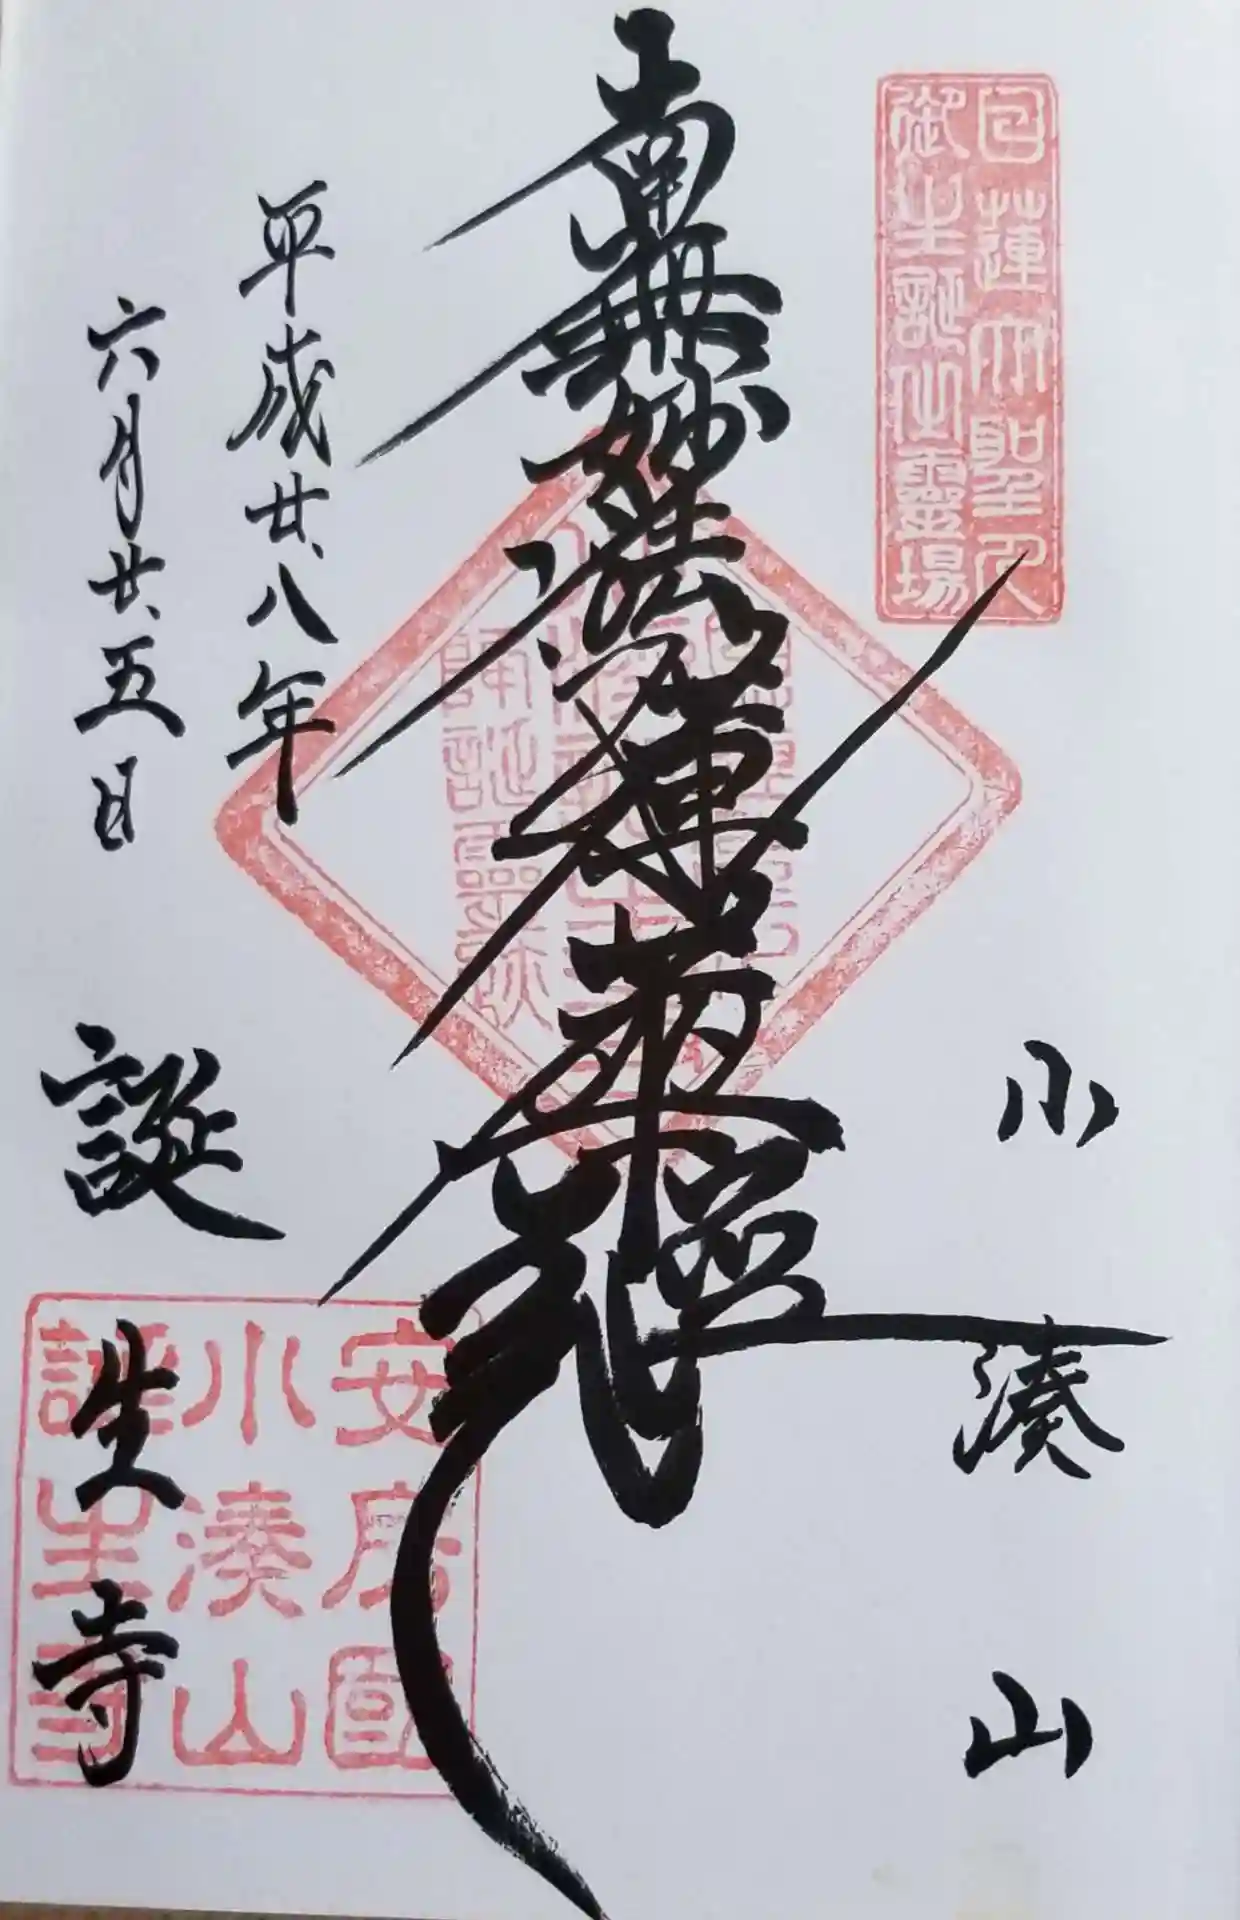 日蓮大聖人
御生誕之霊場
小湊山
南無妙法蓮華経
平成廿八年
六月廿五日
誕生寺
安房國
小湊山
誕生寺